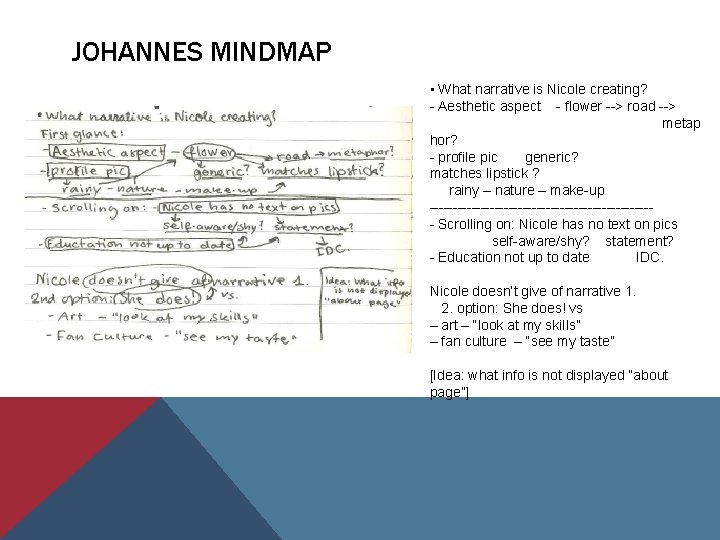 JOHANNES MINDMAP
• What narrative is Nicole creating?
First glance:
- Aesthetic aspect - flower → road → metaphor?
- profile pic generic? matches lipstick?
rainy - nature - make-up
- Scrolling on: - Nicole has no text on pics
self-aware/shy? statement?
- Eductation not up to date IDC.
Nicole doesn't give of narrative 1.
2nd option: She does! vs.
- Art - "look at my skills"
- Fan Culture - "see my taste"
Idea: what info
is not displayed
"about page"
• What narrative is Nicole creating?
- Aesthetic aspect - flower --> road -->
metap
hor?
- profile pic generic?
matches lipstick ?
rainy – nature – make-up
------------------------------------------------
- Scrolling on: Nicole has no text on pics
self-aware/shy? statement?
- Education not up to date IDC.
Nicole doesn't give of narrative 1.
2. option: She does! vs
– art – "look at my skills"
– fan culture – "see my taste"
[Idea: what info is not displayed "about
page"]